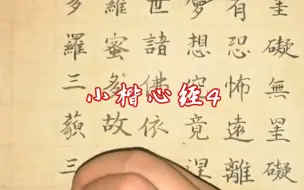 礙無罣礙
有恐怖遠離
夢想究竟涅
世諸佛依
羅蜜多故
多羅三藐三
小楷心经4